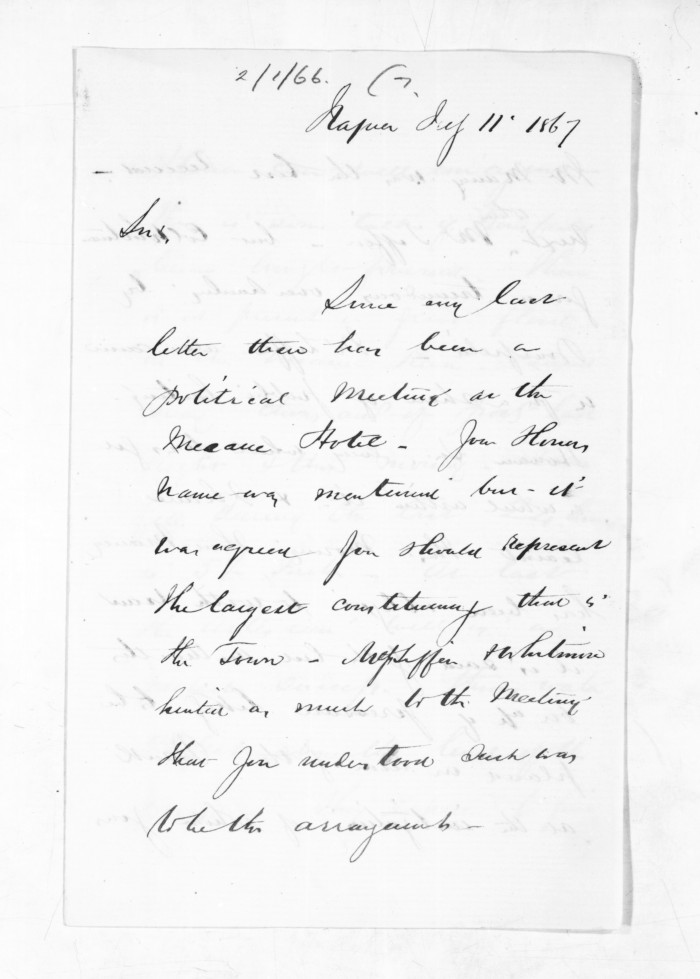 2/1/66.
Napier July 11 1867
Sir,
Since my last
letter there has been a
political Meeting at the
Meeanee Hotel - Your Honors
name was mentioned but - it
was agreed you should represent
the largest constituency that is
the Town - Whitmore
hinted as much to the Meeting
that you understood such was
to be the arrangements -